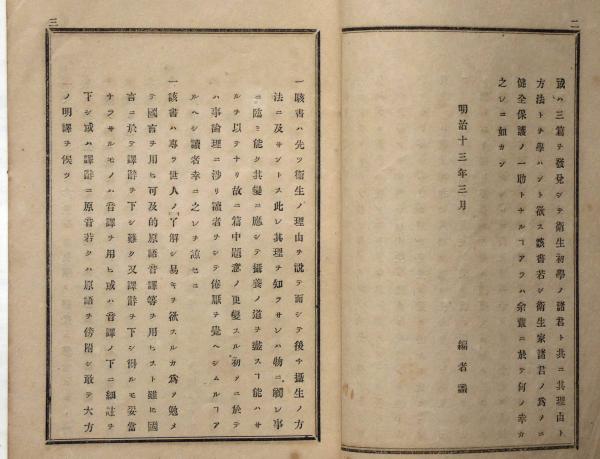 二
或ハ三篇ヲ發兌シテ衛生初學ノ諸君ト共ニ其理由ト
方法トヲ學ハント欲ス該書若シ衛生家諸君ノ爲メニ
健全保護ノ一助トナルヿアラハ余輩ニ於テ何ノ幸カ
之レニ如カン
明治十三年三月
編者識
三
一該書ハ先ツ衛生ノ理由ヲ說テ而シテ後チ攝生ノ方
法ニ及サントス此レ其理ヲ知ラサレハ物ニ觸レ事
ニ臨ミ能ク其變ニ應シテ攝養ノ道ヲ盡スヿ能ハサ
ルヲ以テナリ故ニ篇中題意ノ更變スル初メニ於テ
ハ事論理ニ涉リ讀者ヲシテ倦厭ヲ覺ヘシムルヿア
ルヘシ讀者幸ニ之レヲ諒セヨ
一該書ハ專ラ世人ノ了解シ易キヲ欲スルカ爲メ勉メ
テ國言ヲ用ヒ可及的原語音譯等ヲ用ヒスト雖𪜈國
言ニ於テ譯辭ヲ下シ難ク又譯辭ヲ下シ得ルモ妥當
ナラサルモノハ音譯ヲ用ヒ或ハ音譯ノ下ニ細註ヲ
下シ或ハ譯辭ニ原音若クハ原語ヲ傍附シ敢テ大方
ノ明譯ヲ俟ツ